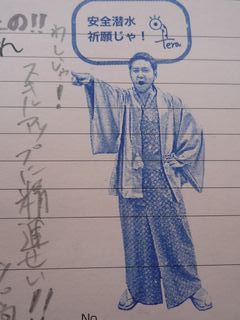 の!!
れ
安全潜水
祈願じゃ!
Tera
わしじゃ!
スキルアップに精進せい!!
No.